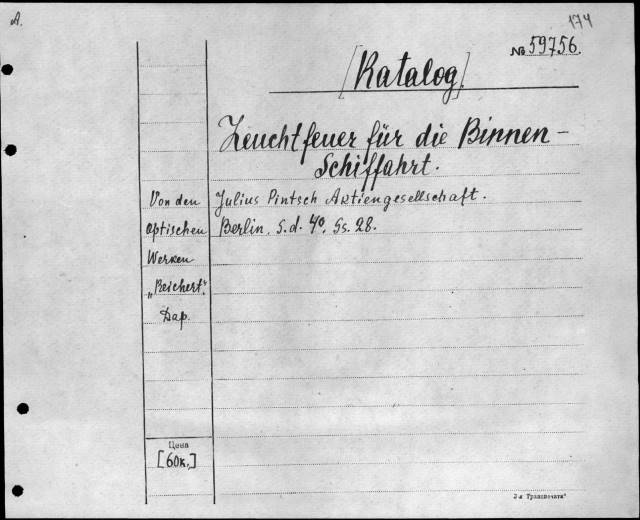 A.
174
№ 59756.
[Katalog].
Leuchtfeuer für die Binnen-
Schiffahrt.
Julius Pintsch Aktiengesellschaft.
Berlin. S.d. 4°. Ss. 28.
Von den
optischen
Werken
„Reichert".
Dar.
Цена
[60к.]
3-я Транспечать